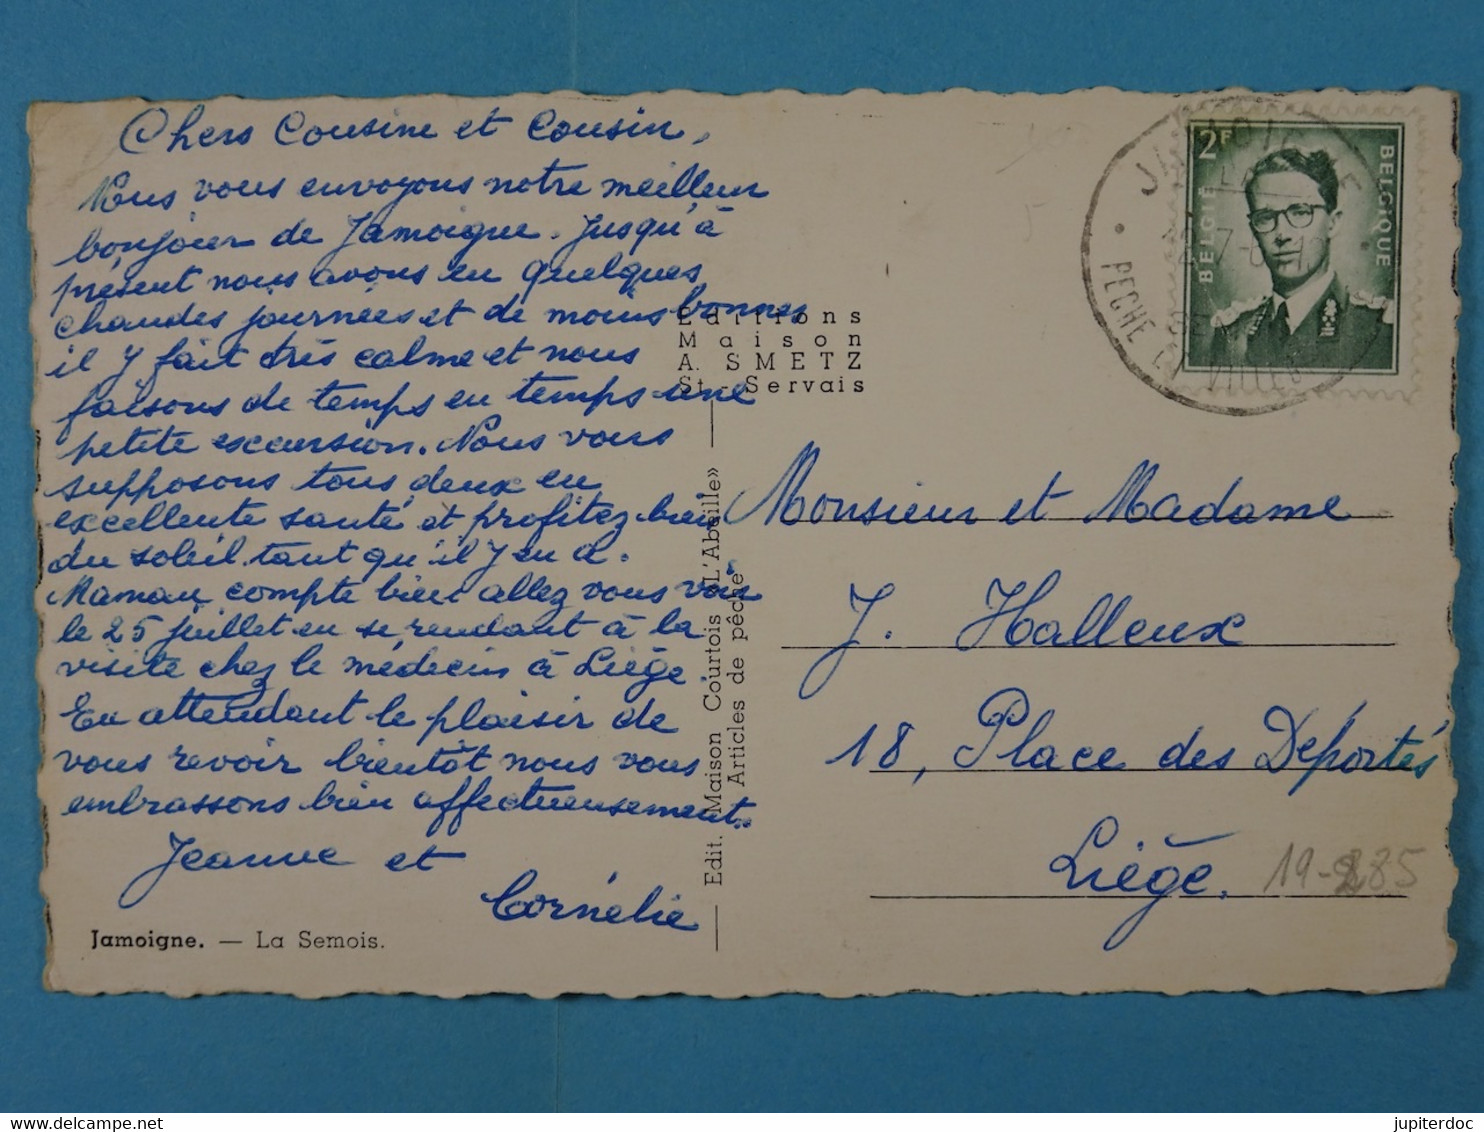 Chers Cousine et Cousin,
Nous vous envoyons notre meilleur
bonjour de Jamoigne. Jusqu'à
présent nous avons eu quelques
chaudes journées et de moins bonnes
il y fait très calme et nous
faisons de temps en temps une
petite excursion. Nous vous
supposons tous deux en
excellente santé et profitez bien
du soleil tant qu'il y en a.
Maman compte bien allez vous voir
le 25 juillet en se rendant à la
visite chez le médecin à Liège.
En attendant le plaisir de
vous revoir bientôt nous vous
embrassons bien affectueusement.
Jeanne et
Cornélie
Jamoigne. — La Semois.
Editions
Maison
A. SMETZ
St-Servais
Edit. «Maison Courtois «L'Abeille»
Articles de pêche
2F
BELGIE
BELGIQUE
JAMOIGNE
PECHE
Monsieur et Madame
J. Halleux
18, Place des Déportés
Liège.
jupiterdoc